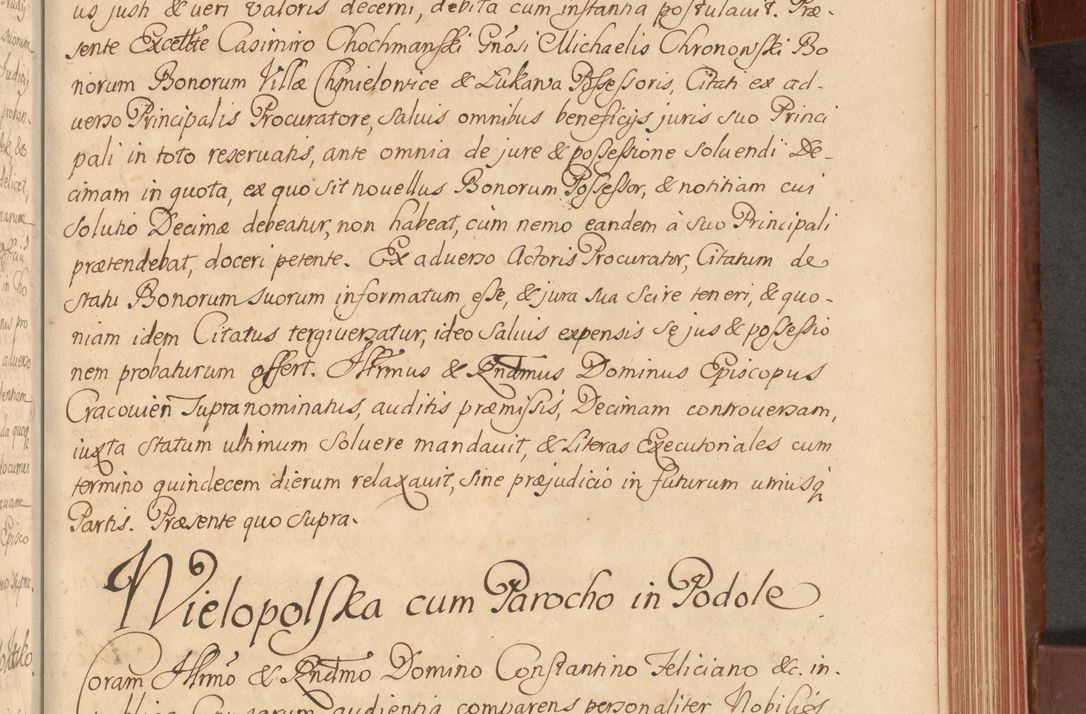 us justi & veri valoris decerni, debita cum instantia postulavit. Præ-
sente Excelłte Casimiro Chochmański Gnosi Michaelis Chronowski Bo
norum Bonorum Villæ Chmielowice & Lukawa Possessoris, Citati ex ad-
verso Principalis Procuratore, salvis omnibus beneficijs juris suo Princi
pali in toto reservatis, ante omnia de jure & possessione solvendi De-
cimam in quota, ex quo sit novellus Bonorum Possessor, & notitiam cui
solutio Decimæ debeatur, non habeat, cùm nemo eandem à suo Principali
prætendebat, doceri petente. Ex adverso Actoris Procurator, Citatum de
statu Bonorum suorum informatum esse, & jura sua scire teneri, & quo-
niam idem Citatus tergiversatur, ideo salvis expensis se jus & possessio
nem probaturum offert. Illrmus & Rndmus Dominus Episcopus
Cracovien supra nominatus, auditis præmissis, Decimam controversam,
iuxta statum ultimum solvere mandavit, & Literas Executoriales cum
termino quindecem dierum relaxavit, sine præjudicio in futurum utriusq
Partis. Præsente quo supra.
Wielopolska cum Parocho in Podole
Coram Illrmo & Rndmo Domino Constantino Feliciano &c. in
publica Causarum audientia comparens personaliter Nobilis